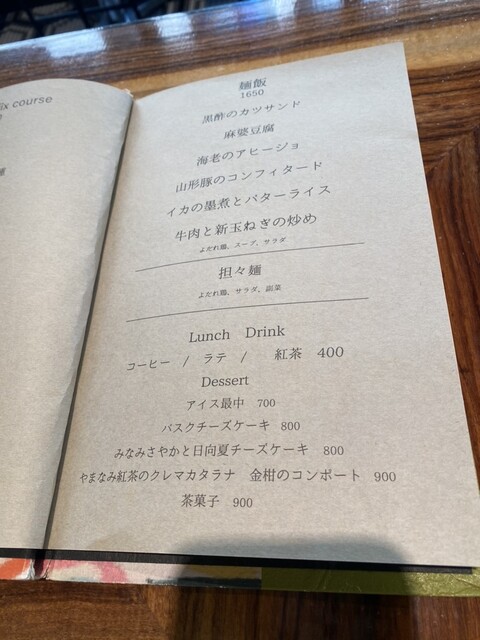 ix course
麺飯
1650
黒酢のカツサンド
麻婆豆腐
海老のアヒージョ
山形豚のコンフィタード
イカの墨煮とバターライス
牛肉と新玉ねぎの炒め
よだれ鶏、スープ、サラダ
担々麺
よだれ鶏、サラダ、副菜
Lunch Drink
コーヒー / ラテ / 紅茶 400
Dessert
アイス最中 700
バスクチーズケーキ 800
みなみさやかと日向夏チーズケーキ 800
やまなみ紅茶のクレマカタラナ 金柑のコンポート 900
茶菓子 900